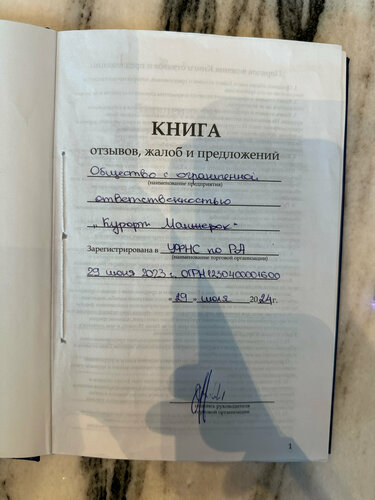 КНИГА
отзывов, жалоб и предложений
Общество с ограниченной
(наименование предприятия)
ответственностью
„Курорт Манжерок“
Зарегистрирована в УФНС по РА
(наименование торговой организации)
29 июня 2023 г. ОГРН 1230400001600
«29» июля 2024г.
подпись руководителя
торговой организации
1